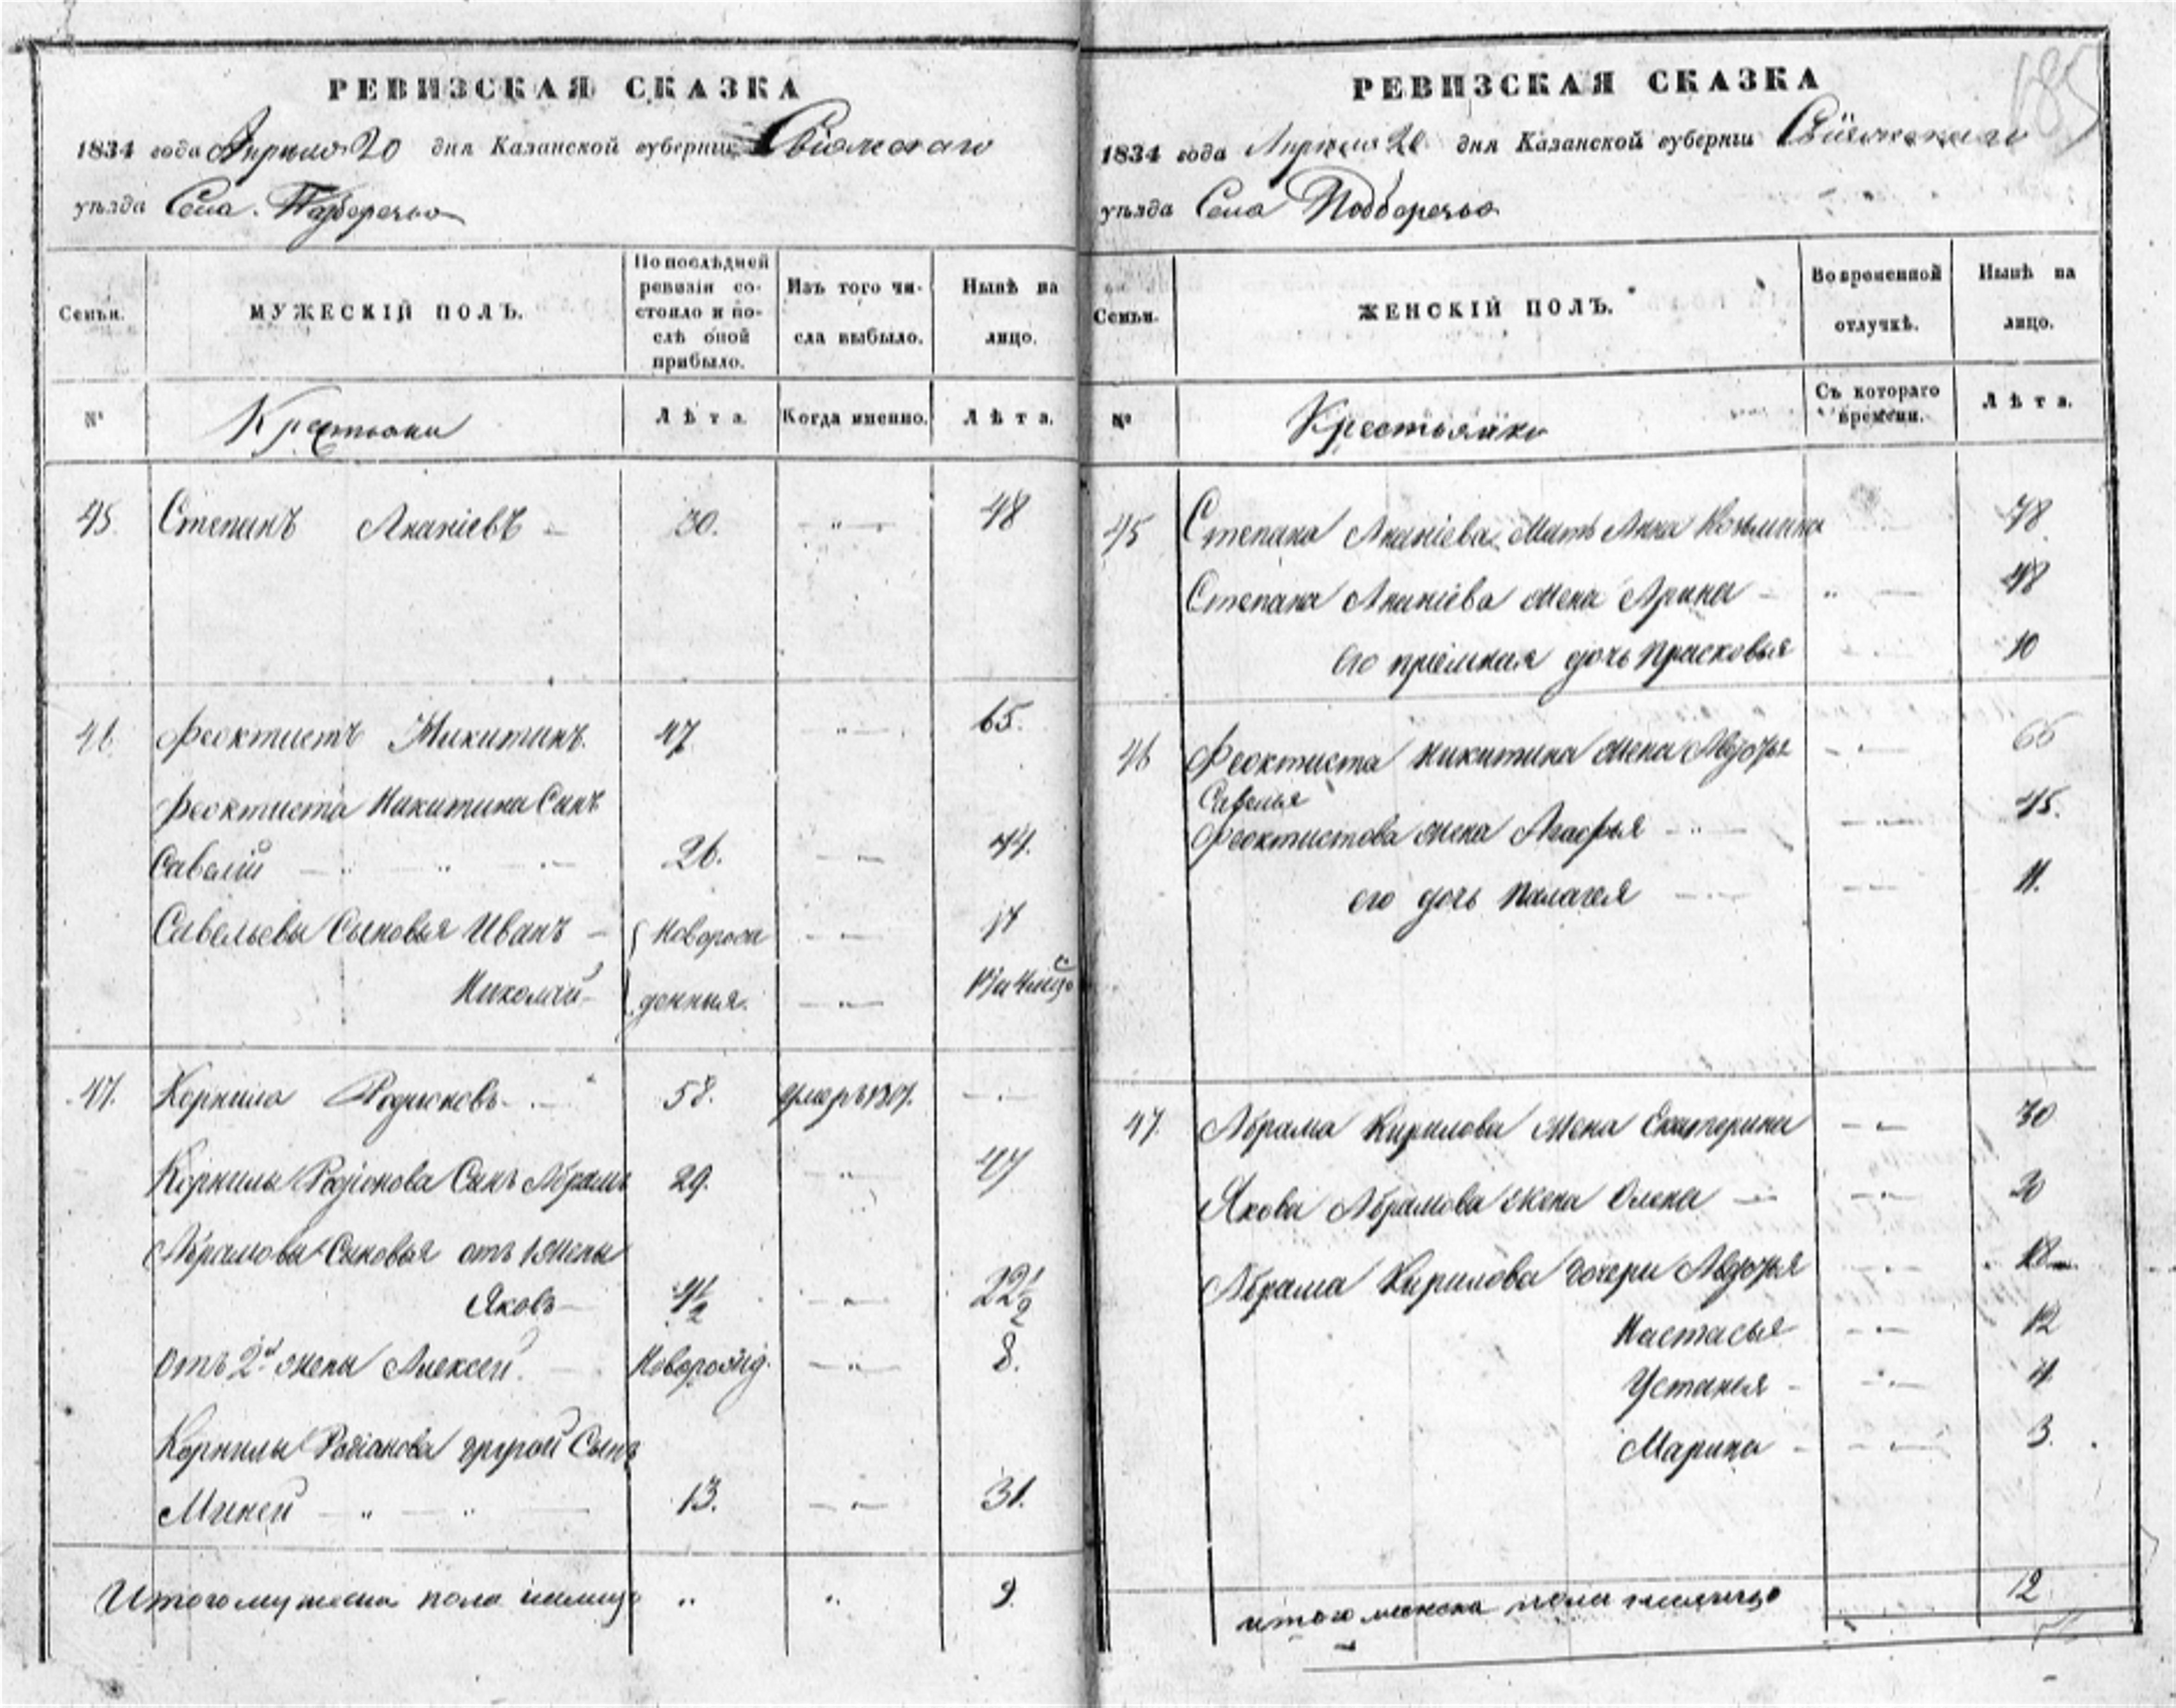 РЕВИЗСКАЯ СКАЗКА
1834 года Апреля 20 дня Казанской губернии Свіяжскаго
уѣзда Села Подберезья
Семьи.
МУЖЕСКІЙ ПОЛЪ.
По послѣдней ревизіи состояло и послѣ оной прибыло.
Изъ того числа выбыло.
Нынѣ на лицо.
№
Крестьяни
Лѣта.
Когда именно.
Лѣта.
45. Степанъ Ананіевъ 30. 48
46. Феоктистъ Никитинъ. 47 65.
Феоктиста Никитина Сынъ
Савелій 26. 44.
Савельевы Сыновья Иванъ Новорож 17
Николай денныя.
47. Корнила Родионовъ 58. умеръ
Корнилы Родіонова Сынъ Абрамъ 29. 47
Абрамовы Сыновья отъ 1 жены
Яковъ 4½ 22½
Отъ 2й жены Алексей. Новорожд. 8.
Корнилы Родіонова другой Сынъ
Миней 13. 31.
Итого мужеска пола налицо 9.
185
РЕВИЗСКАЯ СКАЗКА
1834 года Апреля 20 дня Казанской губерніи Свіяжскаго
уѣзда Села Подберезья
Семьи.
ЖЕНСКІЙ ПОЛЪ.
Во временной отлучкѣ.
Нынѣ на лицо.
№
Крестьянки
Съ котораго времени.
Лѣта.
45 Степана Ананіева Мать Анна Козьмина 78.
Степана Ананіева жена Арина 48
его пріемная дочь Прасковья 10
46 Феоктиста Никитина жена Авдотья 66
Савелья
Феоктистова жена Агафья 45.
его дочь Палагея 11.
47. Абрама Кирилова жена Екатерина 30
Якова Абрамова жена Олена 20
Абрама Кирилова дочери Авдотья 18
Настасья 12
Устинья 4
Марина 3.
итого женска пола налицо 12